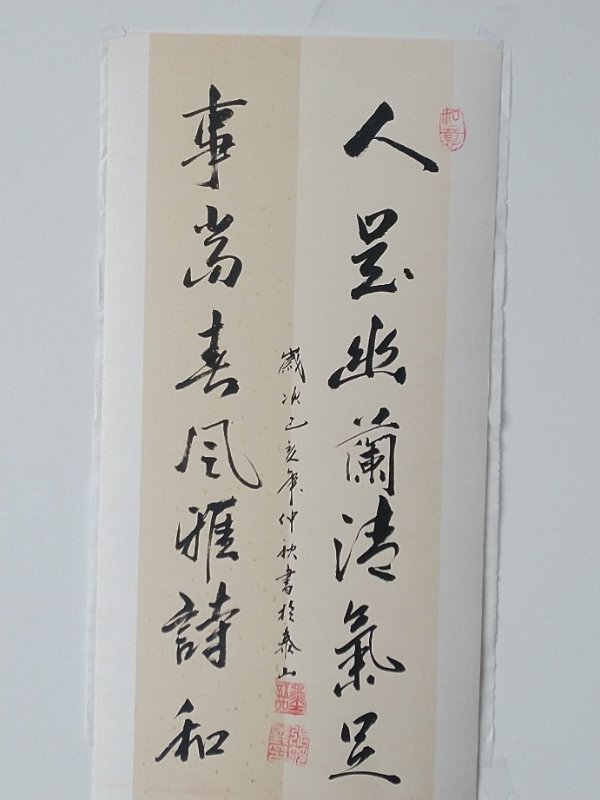 人是幽蘭清氣足
事尚春風雅詩和
歲次己亥年仲秋書於泰山